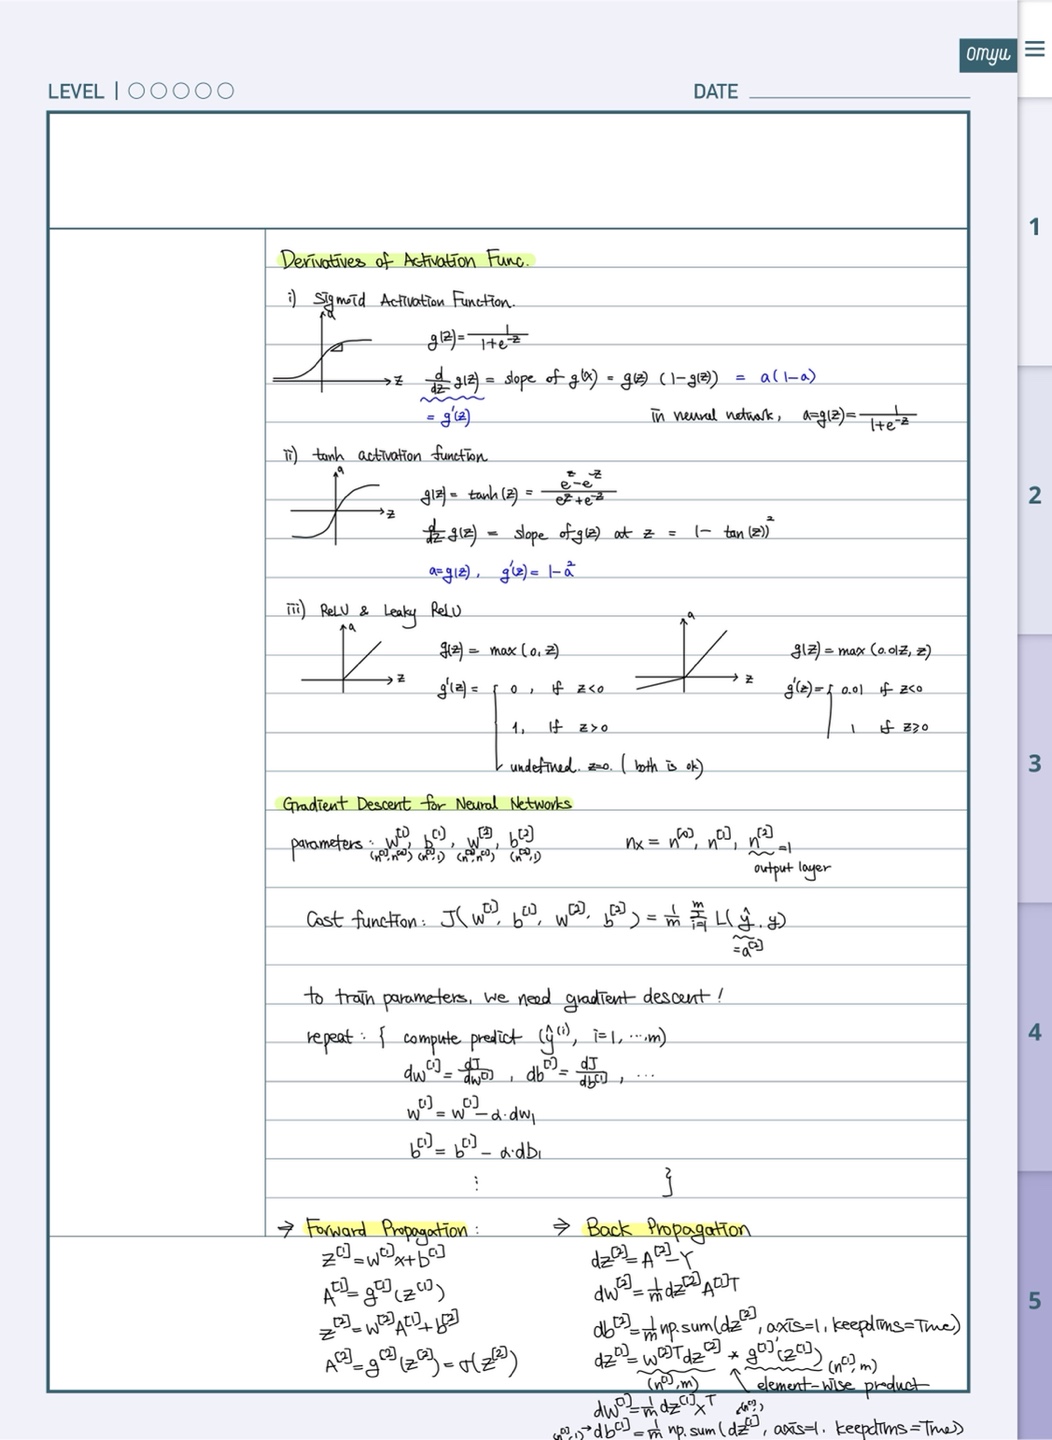 omyu
LEVEL | ○○○○○
DATE
1
2
3
4
5
Derivatives of Activation Func.
i) Sigmoid Activation Function.
a
z
g(z)= 1/(1+e^-z)
d/dz g(z) = slope of g(x) = g(z) (1-g(z)) = a(1-a)
= g'(z)
in neural network, a=g(z)= 1/(1+e^-z)
ii) tanh activation function
a
z
g(z)= tanh(z) = (e^z-e^-z)/(e^z+e^-z)
d/dz g(z) = slope of g(z) at z = 1- tan(z))^2
a=g(z), g'(z)= 1-a^2
iii) ReLU & Leaky ReLU
a
z
g(z) = max(0, z)
g'(z) = { 0, if z<0
1, if z>0
undefined. z=0. (both is ok)
a
z
g(z)=max(0.01z, z)
g'(z)= { 0.01 if z<0
1 if z≥0
Gradient Descent for Neural Networks
parameters : w^[1], b^[1], w^[2], b^[2]
(n^[1], n^[0]) (n^[1], 1) (n^[2], n^[1]) (n^[2], 1)
nx = n^[0], n^[1], n^[2] =1
output layer
Cost function: J(w^[1], b^[1], w^[2], b^[2]) = 1/m Σ_{i=1}^m L(ŷ, y)
=a^[2]
to train parameters, we need gradient descent!
repeat : { compute predict (ŷ^(i), i=1, ...m)
dw^[1] = dJ/dw^[1], db^[1] = dJ/db^[1], ...
w^[1] = w^[1] - α·dw1
b^[1] = b^[1] - α·db1
⋮ }
→ Forward Propagation :
z^[1]=w^[1]x+b^[1]
A^[1]=g^[1](z^[1])
z^[2]=w^[2]A^[1]+b^[2]
A^[2]=g^[2](z^[2])=σ(z^[2])
⇒ Back Propagation
dz^[2]=A^[2]-Y
dw^[2]=1/m dz^[2]A^[1]T
db^[2]=1/m np.sum(dz^[2], axis=1, keepdims=True)
dz^[1]=w^[2]T dz^[2] * g^[1]'(z^[1]) (n^[1], m)
(n^[1], m) element-wise product
dw^[1]=1/m dz^[1]x^T
db^[1]=1/m np.sum(dz^[1], axis=1. keepdims=True)